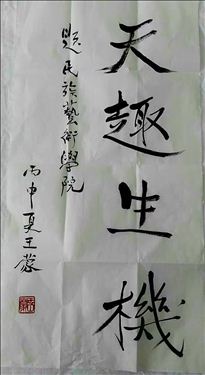 天趣生機
題民族藝術學院
丙申夏王蒙